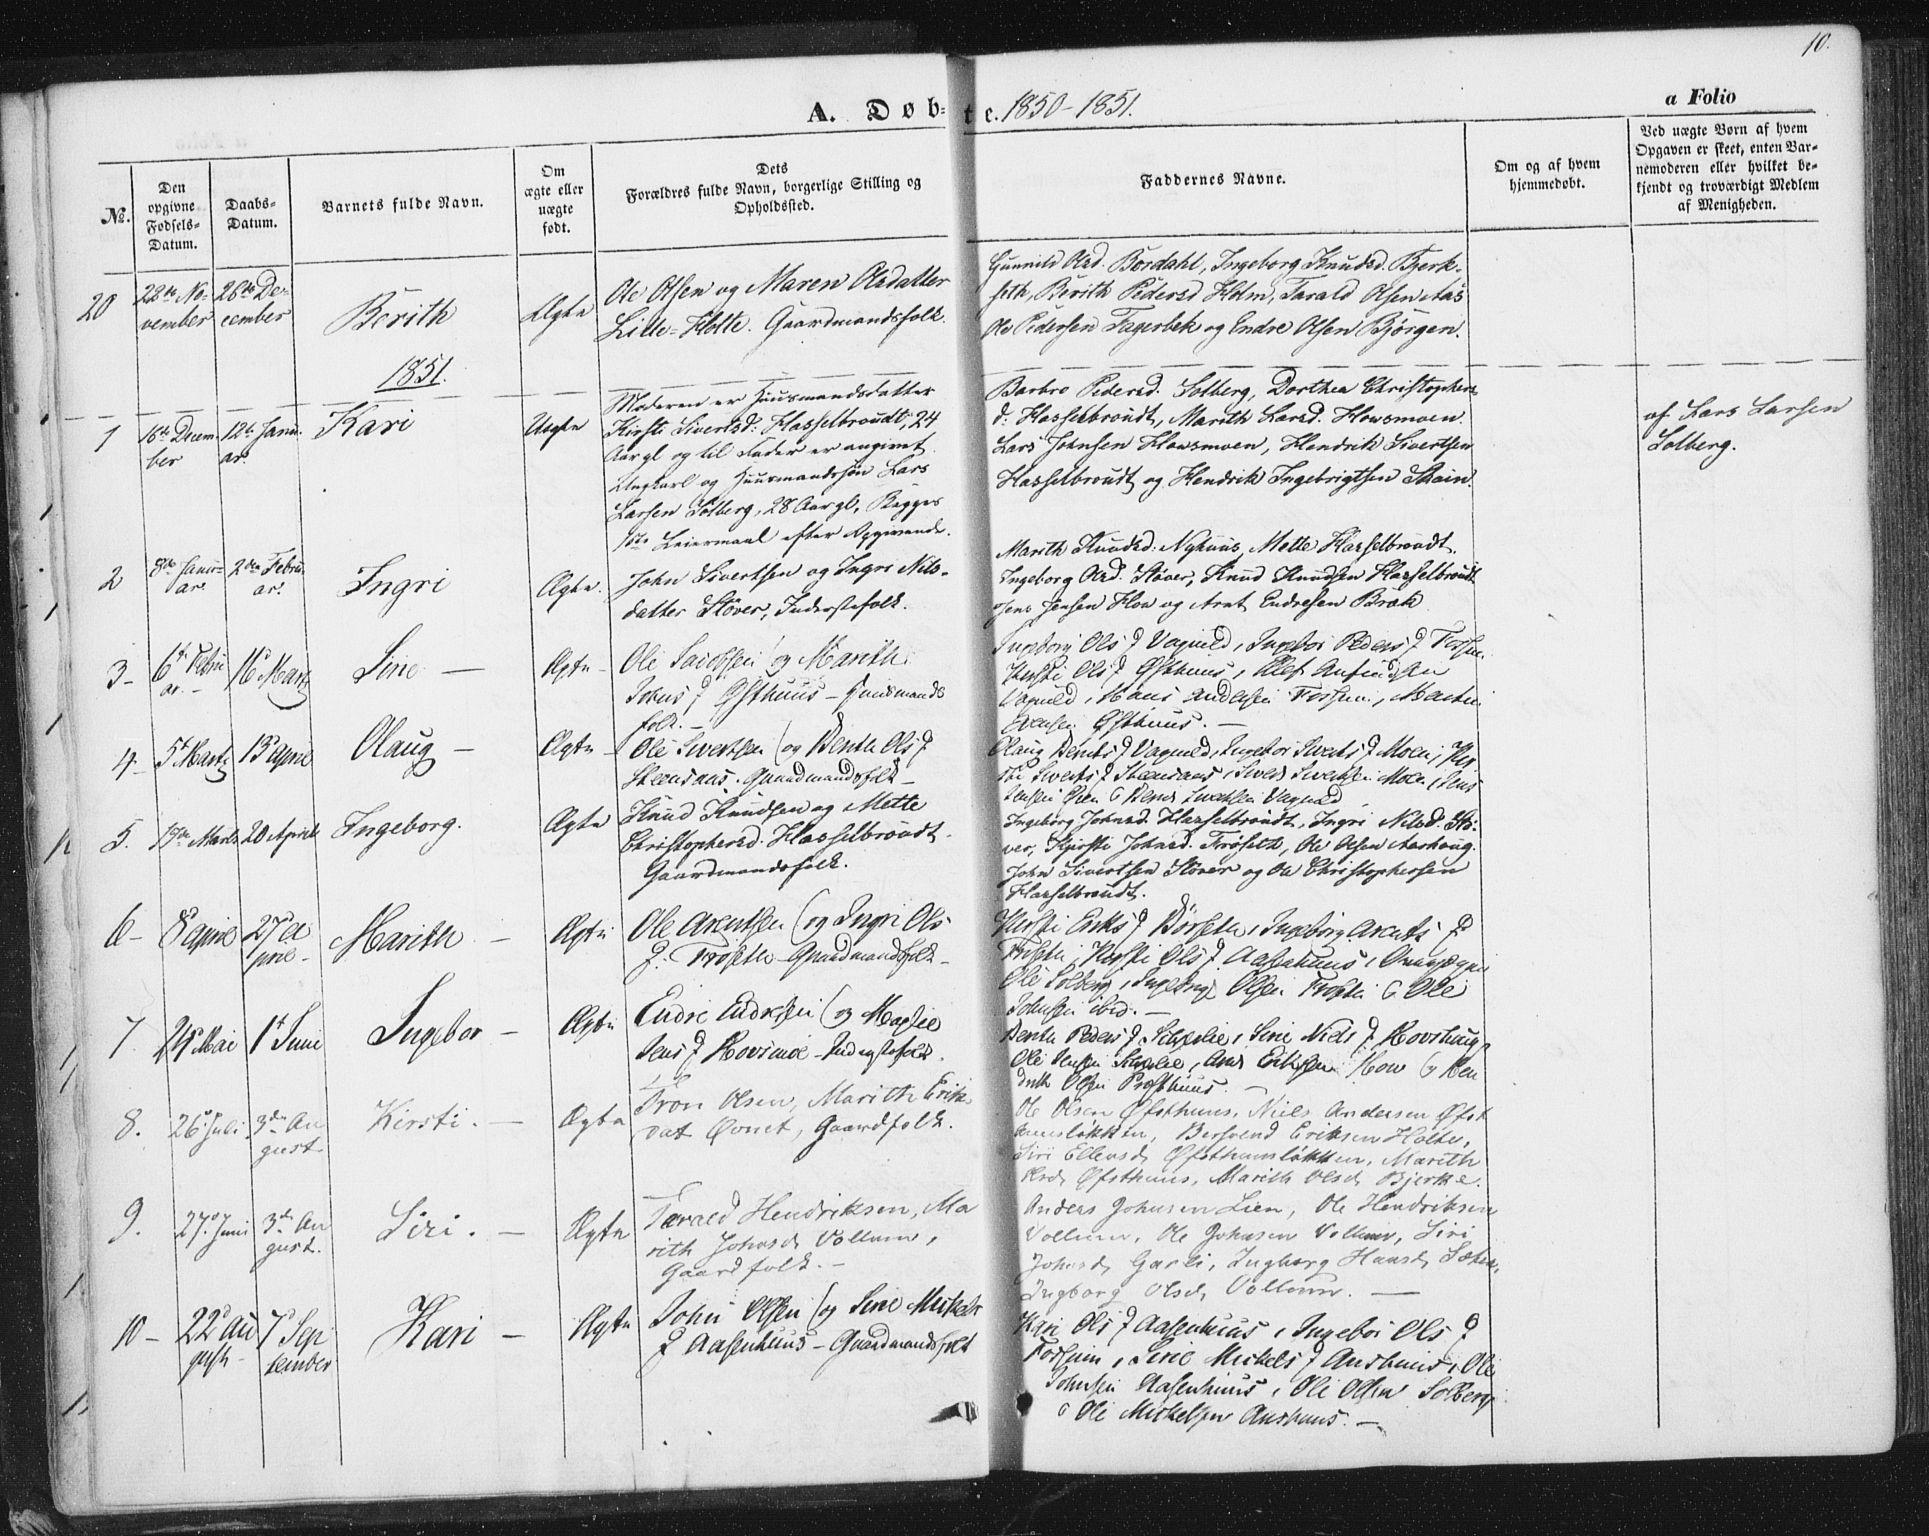 10.
A. Døbte. 1850-1851.
a Folio
No.
Den opgivne Fødsels-Datum.
Daabs-Datum.
Barnets fulde Navn.
Om ægte eller uægte født.
Dets Forældres fulde Navn, borgerlige Stilling og Opholdssted.
Faddernes Navne.
Om og af hvem hjemmedøbt.
Ved uægte Børn af hvem Opgaven er skeet, enten Barnemoderen eller hvilket bekjendt og troværdigt Medlem af Menigheden.
20
28de November
26de December
Berith
Ægte
Ole Olsen og Maren Olsdatter
Lille-Flotte. Gaardmandsfolk.
Gunnild Olsd. Bordahl, Ingeborg Knudsd. Bjerk-
seth, Berith Pedersd Holm, Tarald Olsen Aas
Ole Pedersen Fagerbek og Endre Olsen Bjørgen.
1851.
1
16de December
12te Januar.
Kari
Uægte
Moderen er Huusmandsdatter
Kirsti Sivertsd: Hasselbroudt, 24
Aar gl og til Fader er angivet
Ungkarl og Huusmandssøn Lars
Larsen Solberg, 28 Aar gl, Begges
1ste Leiermaal efter Opgivende.
Barbro Pedersd. Solberg, Dorthea Christophers-
d: Hasselbroudt, Marith Larsd. Flowsmoen.
Lars Johnsen Flowsmoen, Hendrik Sivertsen
Hasselbroudt og Hendrik Ingebrigtsen Skain.
af Lars Larsen
Solberg.
2
8de Januar.
2den Februar.
Ingri
Ægte.
John Sivertsen og Ingri Nils-
datter Støver, Inderstefolk.
Marith Knudsd: Nyhuus, Mette Hasselbroudt.
Ingeborg Olsd. Støver, Knud Knudsen Hasselbroudt
Jens Jensen Flow og Arnt Endresen Bræk
3-
6te Februar.-
16 Marts
Sirie -
Ægte -
Ole Jacobsen og Marith
Johns D Øfsthuus - Huusmands
folk.-
Ingeborg Ols D Vagnild, Ingebor Peders D Fossem.
Kirsti Ols D Øfsthuus, Ellef Anfindsen
Vagnild, Hans Andersen Fossem, Marten
Øfsthuus.-
4-
5t Marts
13 April
Olaug -
Ægte -
Ole Sivertsen og Benthe Ols D
Steensaas. Gaardmandsfolk-
Olaug Bernts D Vagnild, Ingebor Siverts D Moen, Kir-
sti Siverts D Steensaas, Siver Sivertsen Moen, Jens
5.
15de Marts
20 April
Ingeborg.
Ægte
Knud Knudsen og Mette
Christophersd. Hasselbroudt.
Gaardmandsfolk.
Ingeborg Johnsd. Hasselbroudt, Ingri Nilsd. Stø-
ver, Kjersti Johnsd. Frøseth, Ole Olsen Aarhoug.
John Sivertsen Støver og Ole Christophersen
Hasselbroudt.
6-
8 April
27 April-
Marith -
Ægte
Ole Arentsen og Ingri Ols
D. Frøseth - Gaardmandsfolk-
Kirsti Eriks D Børseth, Ingeborg Arents D
Frøseth, Kirsti Ols D Aasenhuus,
Ole Solberg, Ingebrigt Olsen Frøseth & Ole
Johnsen ibid.-
7.
24 Mai
1t Juni
Ingebor -
Ægte
Endre Endresen og Magli
Jens D Hovsmoe - Inderstefolk.
8.
26 Juli
3die August
Kirsti. -
Ægte
Tron Olsen, Marith Erik
dat Øvnet, Gaardfolk.
Ole Olsen Øfsthuus, Niels Andersen Øfst
huusløkken, Bersvend Eriksen Holte,
Siri Ellevsd Øfsthuusløkken, Marith
Olsd Øfsthuus, Marith Olsd Bjerke.
9.
27. Juni
3die August.
Siri. -
Ægte
Tarald Hendriksen, Ma
rith Johnsd Vollum,
Gaardfolk.-
Anders Johnsen Lien, Ole Hendriksen
Vollum, Ole Johnsen Vollum, Siri
Johnsd Garli, Ingborg Hansd
Ingborg Olsd Vollum. -
10-
22 August-
7 September
Kari -
Ægte
John Olsen og Sirie Mikels
D Aasenhuus - Gaardmandsfolk
Kari Ols D Aasenhuus, Ingebor Ols D
Fossum, Sirie Mikels D Aushuus, Ole
Johnsen Aasenhuus, Ole Olsen Solberg
& Ole Mikelsen Aushuus. -